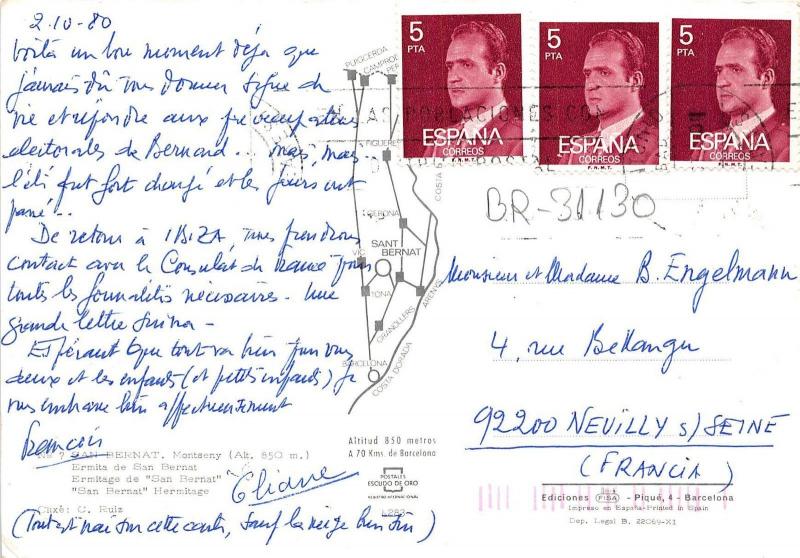 2.10-80
Voilà un bon moment déjà que
j'aurais dû vous donner signe de
vie et répondre aux préoccupations
électorales de Bernard... mais, mais..
l'été fut fort chargé et les jours ont
passé..
De retour à IBIZA, nous prendrons
contact avec le Consulat de France pour
toutes les formalités nécessaires. Une
grande lettre suivra -
Espérant que tout va bien pour vous
deux et les enfants (et petits enfants) je
vous embrasse bien affectueusement
François
Eliane
(Tout est vrai sur cette carte, sauf la neige bien sûr)
Nº 7 SAN BERNAT. Montseny (Alt. 850 m.)
Ermita de San Bernat
Ermitage de "San Bernat"
"San Bernat" Hermitage
Clixé: C. Ruiz
PUIGCERDA
CAMPROD
PER
FIGUERES
COSTA B
GERONA
VIC
SANT
BERNAT
TONA
ARENYS
GRANOLLERS
BARCELONA
COSTA DORADA
Altitud 850 metros
A 70 Kms. de Barcelona
POSTALES
ESCUDO DE ORO
REGISTRO INTERNACIONAL
5
PTA
ESPAÑA
CORREOS
F.N.M.T.
5
PTA
ESPAÑA
CORREOS
F.N.M.T.
5
PTA
ESPAÑA
CORREOS
F.N.M.T.
POBLACIONES CON
POSTAL
BR-31130
Monsieur et Madame B. Engelmann
4, rue Bellanger
92200 NEUILLY s/ SEINE
(FRANCIA)
Ediciones FISA - Piqué, 4 - Barcelona
Impreso en España-Printed in Spain
Dep. Legal B. 22069-XI